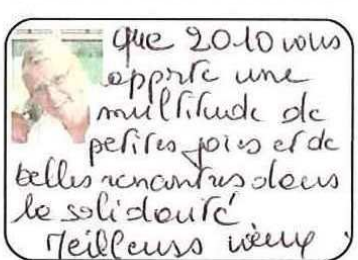 que 2010 vous
apporte une
multitude de
petites joies et de
belles rencontres dans
la solidarité
Meilleurs vœux